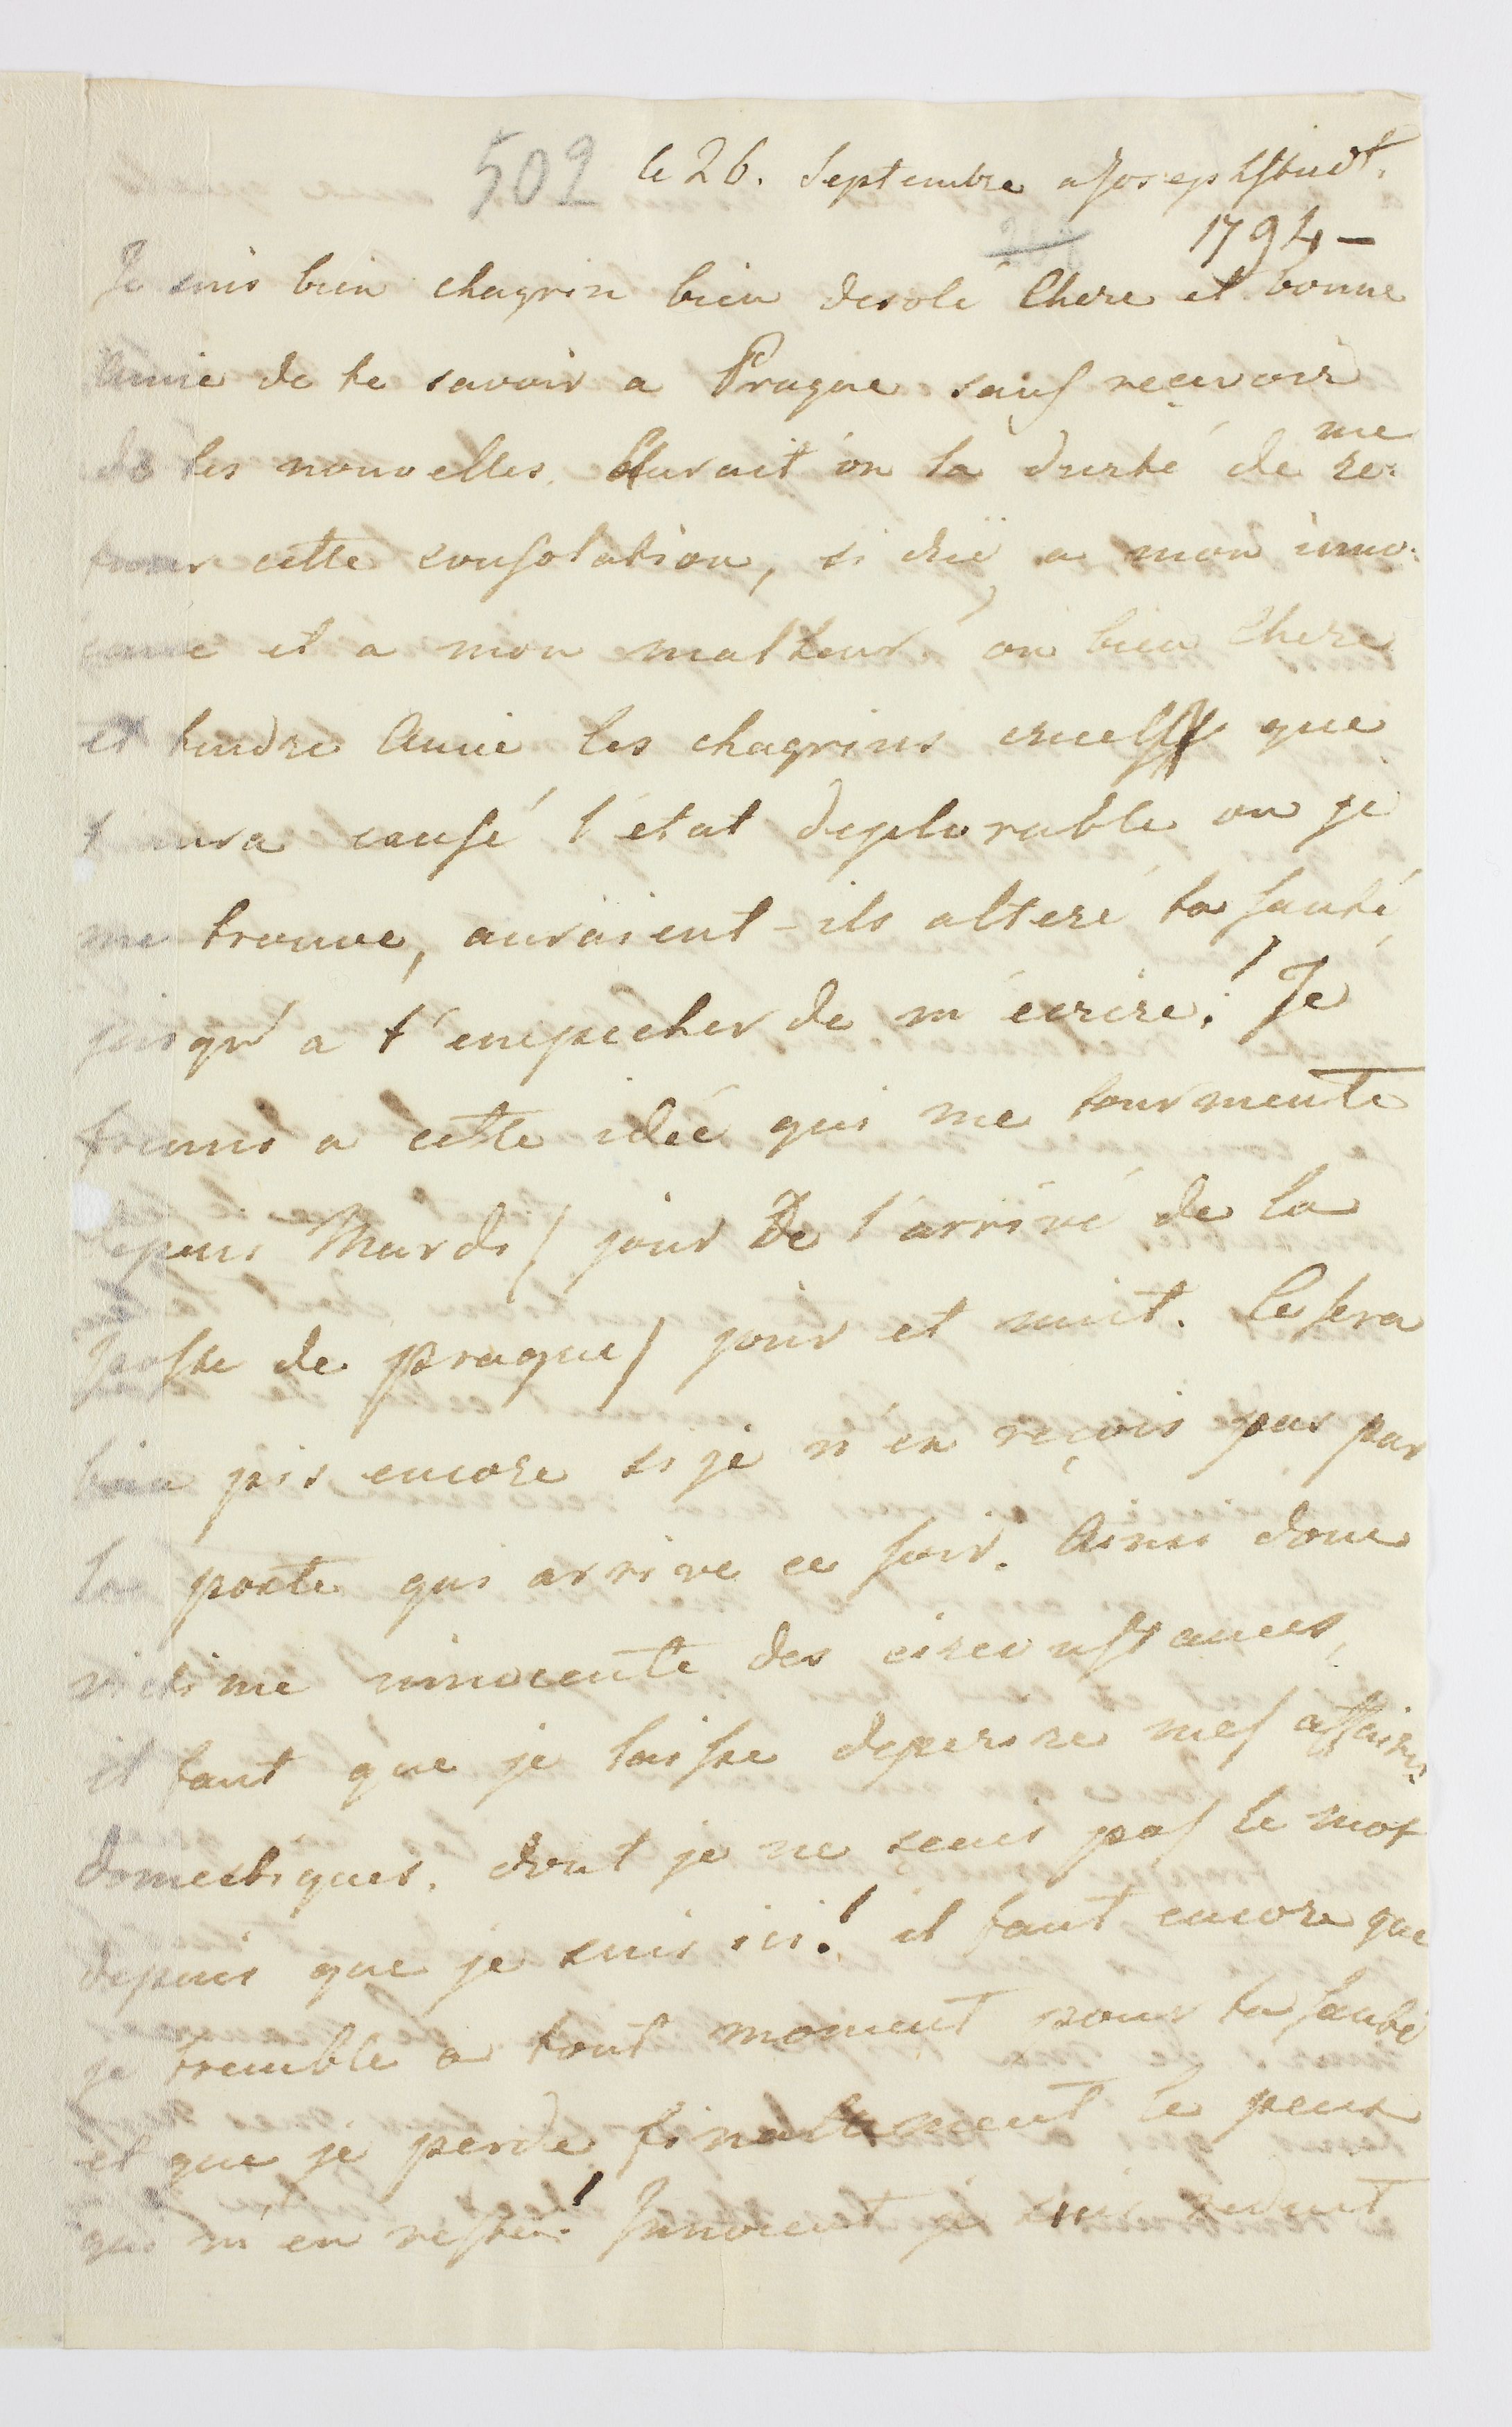 502 le 26. Septembre a Josephstadt.
1794 –
Je suis bien chagrin bien desolé Chere et bonne
Amie de te savoir a Prague sans reçevoir
de tes nouvelles. Aurait on la dureté de me re-
fuser cette consolation, si düe a mon inno-
cence et a mon malheur, ou bien Chere
et tendre Amie les chagrins cruels que
t'aura causé l'etat deplorable ou je
me trouve, auraient-ils alteré ta santé
jusqu'a t'empecher de m'ecrire! Je
fremis a cette idée qui me tourmente
depuis Mardi / jour de l'arrivé de la
poste de prague / jour et nuit. Ce sera
bien pis encore si je n'en reçois pas par
la poste qui arrive ce soir. Ainsi donc
victime innocente des circonstances,
il faut que je laisse deperire mes affaires
domestiques, dont je ne sçais pas le mot
depuis que je suis ici! il faut encore que
je tremble a tout moment pour ta santé
et que je perde finalement le peux
qui m'en reste! Innocent je suis reduit